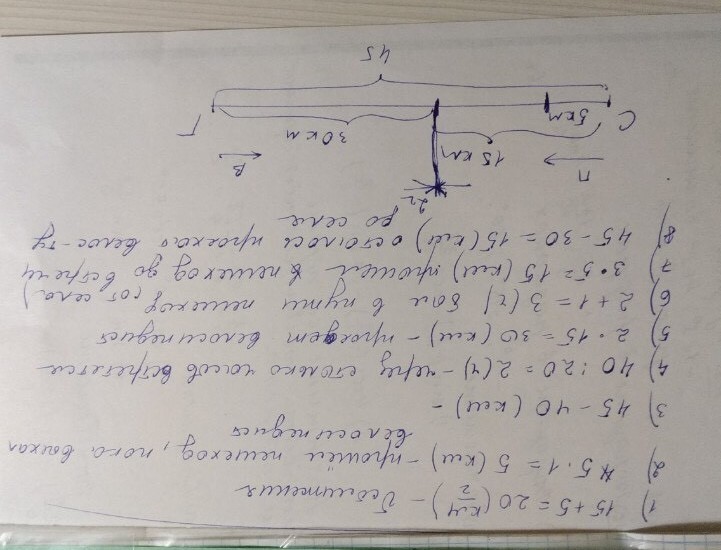 1) 15+5=20 (км/ч) - сближения
2) 5·1=5 (км) - прошёл пешеход, пока выехал
велосипедист
3) 45-40 (км) -
4) 40:20=2 (ч) - через столько часов встретятся
5) 2·15=30 (км) - проедет велосипедист
6) 2+1=3 (ч) был в пути пешеход (от села)
7) 3·5=15 (км) прошёл пешеход до встречи
8) 45-30=15 (км) осталось проехать велос-ту
до села
П
2ч
В
15 км
С
5км
30км
Г
45